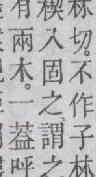 林切。不作子林
楔入固之謂之
有兩木。一葢呼